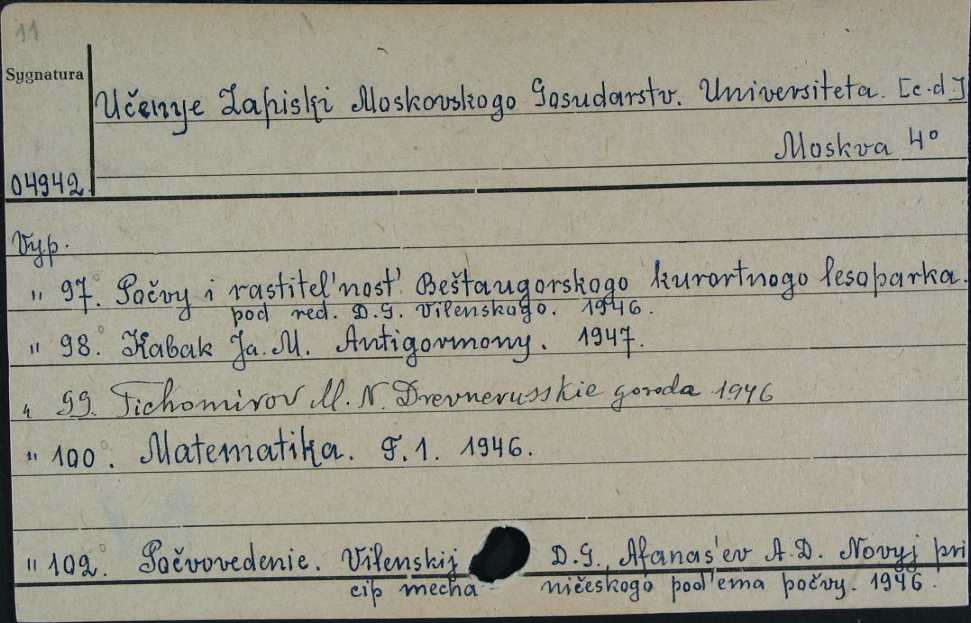 11
Sygnatura
Učenye Zapiski Moskovskogo Gosudarstv. Universiteta. [c.d.]
Moskva 4°
04942
Vyp.
" 97. Počvy i rastitel'nost' Beštaugorskogo kurortnogo lesoparka.
pod red. D.G. Vilenskogo. 1946.
" 98. Kabak Ja. M. Antigormony. 1947.
" 99. Tichomirov M. N. Drevnerusskie goroda 1946
" 100. Matematika. T. 1. 1946.
" 102. Počvovedenie. Vilenskij D.G. Afanas'ev A.D. Novyj pri
cip mecha- ničeskogo pod'ema počvy. 1946.